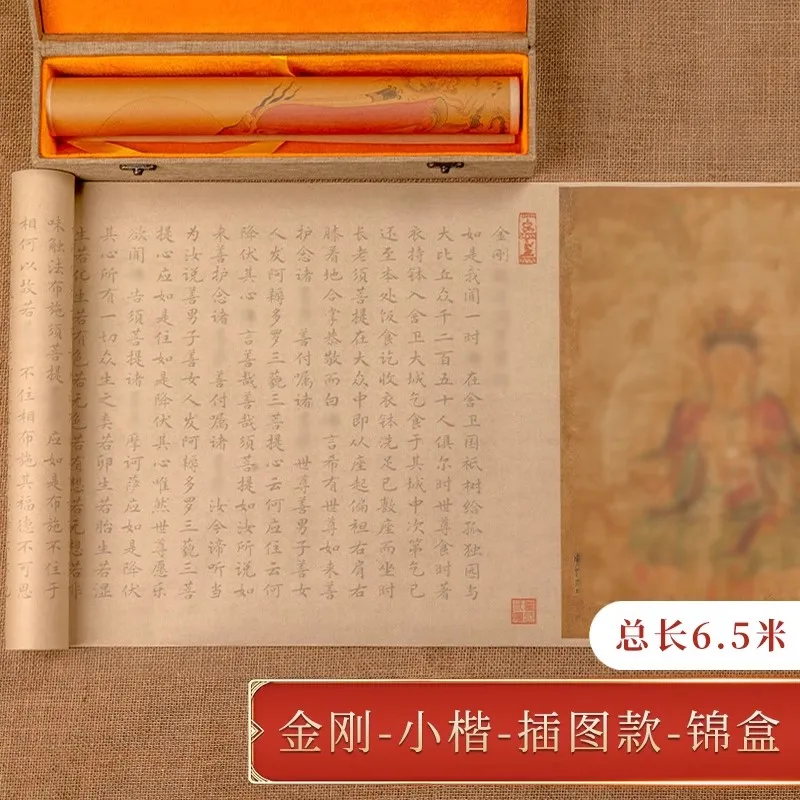 金刚
如是我闻一时 在舍卫国祇树给孤独园与
大比丘众千二百五十人俱尔时世尊食时著
衣持钵入舍卫大城乞食于其城中次第乞已
还至本处饭食讫收衣钵洗足已敷座而坐时
长老须菩提在大众中即从座起偏袒右肩右
膝着地合掌恭敬而白 言希有世尊如来善
护念诸 善付嘱诸 世尊善男子善女
人发阿耨多罗三藐三菩提心云何应住云何
降伏其心 言善哉善哉须菩提如汝所说如
来善护念诸 善付嘱诸 汝今谛听当
为汝说善男子善女人发阿耨多罗三藐三菩
提心应如是住如是降伏其心唯然世尊愿乐
欲闻 告须菩提诸 摩诃萨应如是降伏
其心所有一切众生之类若卵生若胎生若湿
生若化生若有色若无色若有想若无想若非
味触法布施须菩提 应如是布施不住于
相何以故若 不住相布施其福德不可思
总长6.5米
金刚-小楷-插图款-锦盒